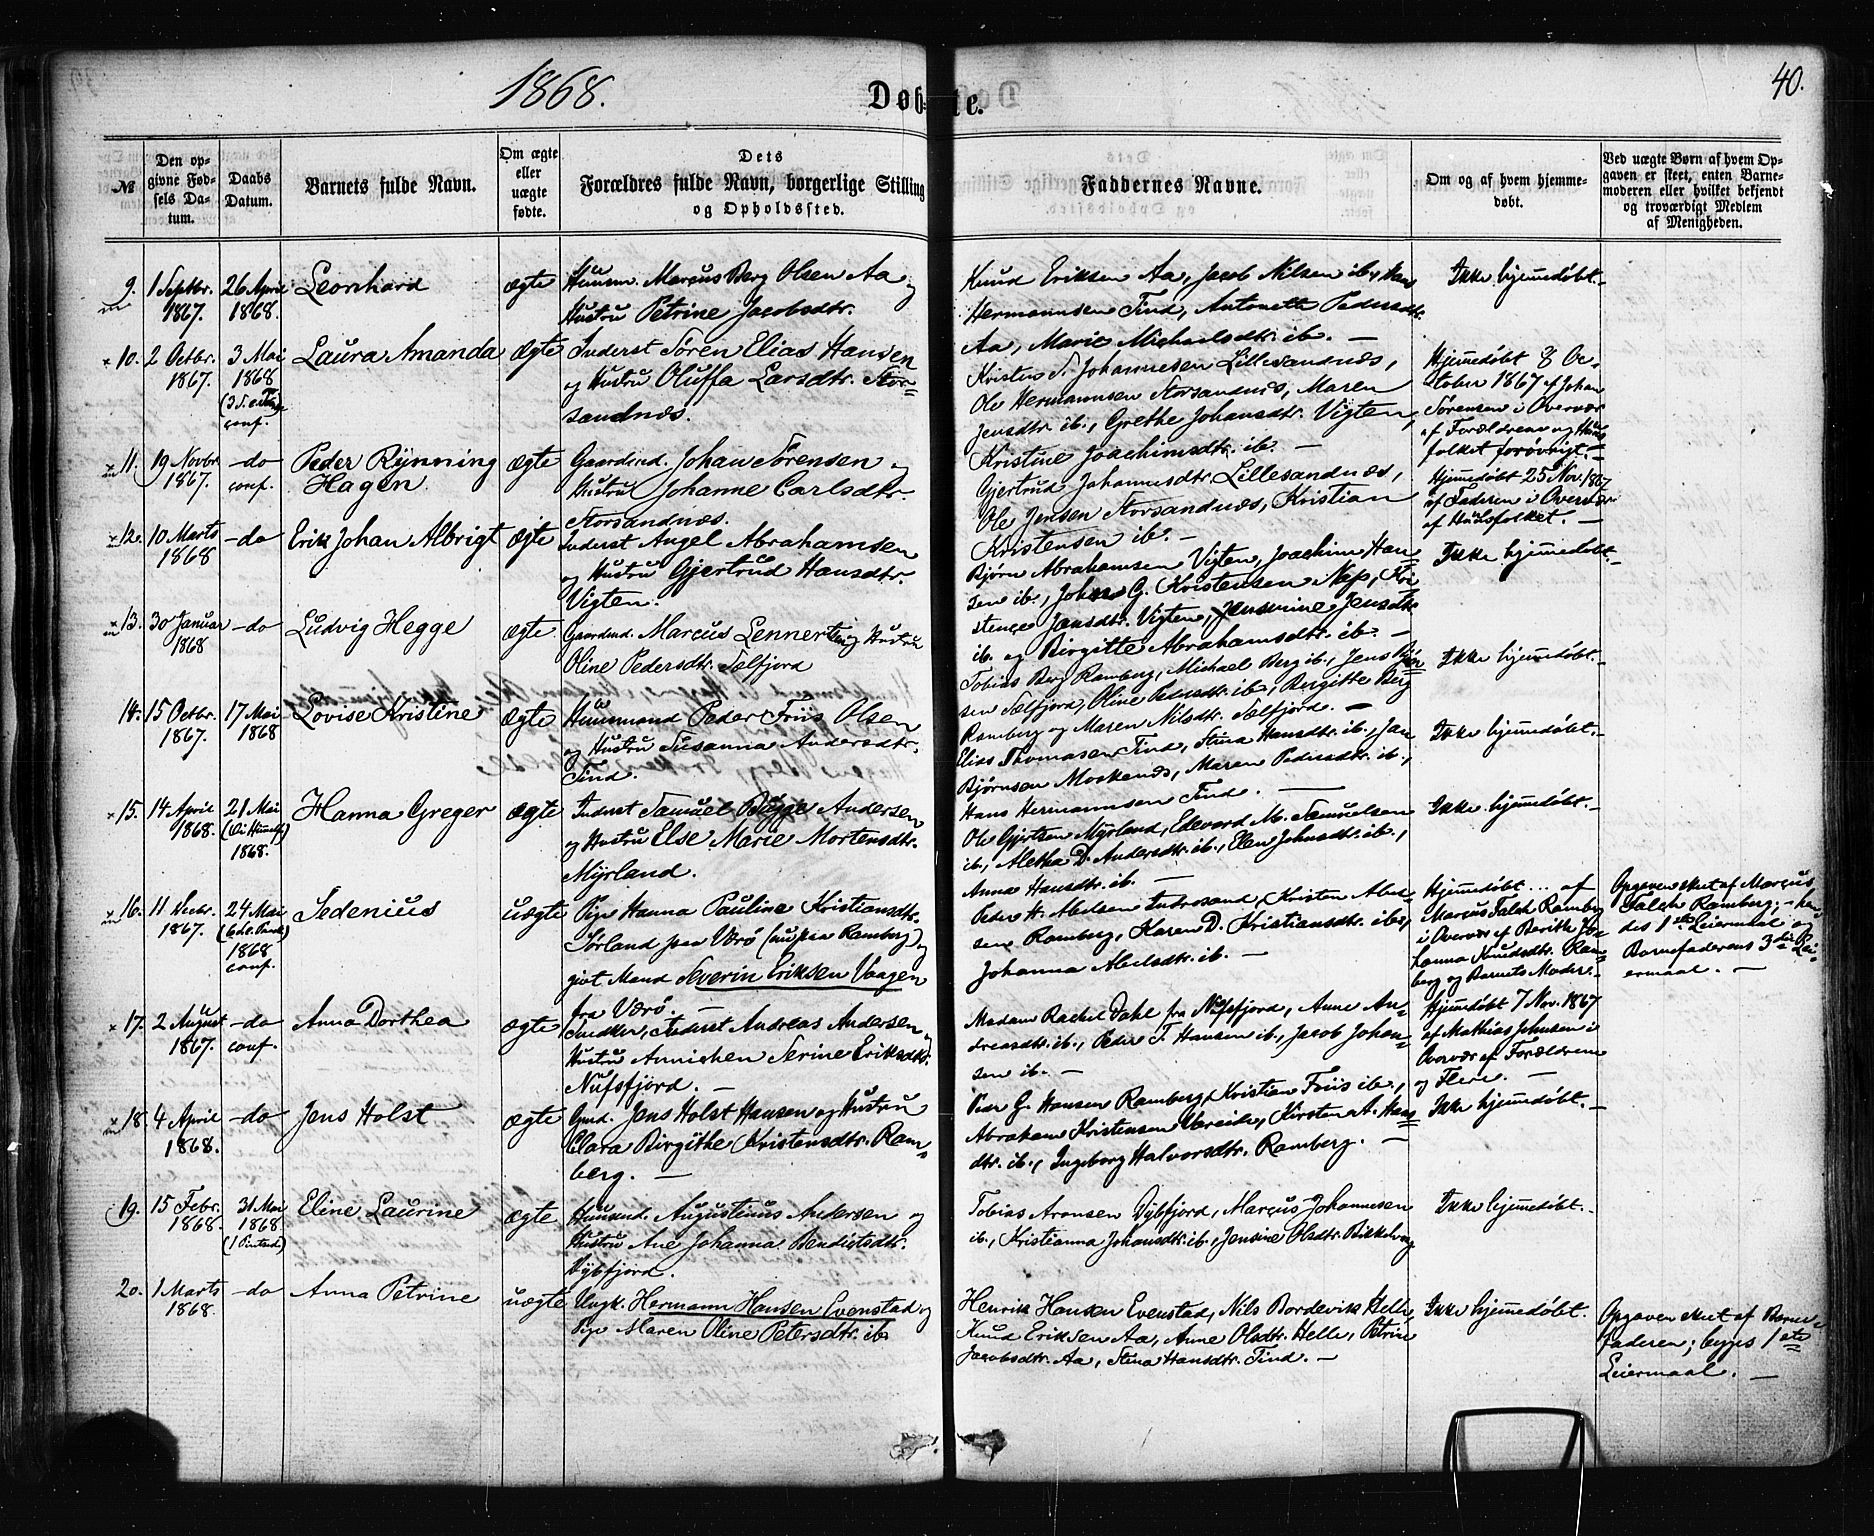 1868.
Døbte.
40.
№
Den opgivne Fødsels Datum.
Daabs Datum.
Barnets fulde Navn.
Om ægte eller uægte fødte.
Dets Forældres fulde Navn, borgerlige Stilling og Opholdssted.
Faddernes Navne.
Om og af hvem hjemmedøbt.
Ved uægte Børn af hvem Opgaven er skeet, enten Barnemoderen eller hvilket bekjendt og troværdigt Medlem af Menigheden.
9. 1 Septbr. 1867. 26 April 1868. Leonhard ægte
Huusm. Marcus Berg Olsen Aa og
Hustru Petrine Jacobsdtr.
Knud Eriksen Aa, Jacob Nilsen ib., Hans
Hermannsen Tind, Antonette Pedersdtr.
Aa, Marie Michaelsdtr. ib. —
Ikke hjemmedøbt. —
10. 2 Octbr. 1867. 3 Mai 1868 conf. Laura Amanda ægte
Inderst Søren Elias Hansen
og Hustru Oluffa Larsdtr. Stor=
sandnæs.
Kristen S. Johannesen Lillesandnæs,
Ole Hermannsen Storsandnæs, Maren
Jensdtr. ib., Grethe Johansdtr. Vigten,
Kristine Joachimsdtr. ib. —
Hjemmedøbt 8 Oc-
tober 1867 af Johan
Sørensen i Overvær
af Forældrene og Huus
folket forøvrigt. —
11. 19 Novbr. 1867. —do conf. Peder Rynning
Hagen ægte
Gaardmd. Johan Sørensen og
Hustru Johanne Carlsdtr
Storsandnæs.
Gjertrud Johannesdtr. Lillesandnæs,
Ole Jensen Storsandnæs, Kristian
Kristensen ib. —
Hjemmedøbt 25 Nov. 1867
af Faderen i Overvær
af Huusfolket. —
12. 10 Marts 1868 —do Erik Johan Albrigt ægte
Inderst Angel Abrahamsen
og Hustru Gjertrud Hansdtr.
Vigten.
Bjørn Abrahamsen Vigten, Joachim Han=
sen ib., Johan G. Kristensen Næs, Kri
stence Jensdtr. Vigten, Jensmine Jensdtr.
ib. og Birgitte Abrahamsdtr. ib. —
Ikke hjemmedøbt. —
13. 30 Januar 1868 —do Ludvig Hegge ægte
Gaardmd. Marcus Lennert og Hustru
Oline Pedersdtr. Sælfjord
Tobias Berg Ramberg, Michael Berg ib., Jens Bjør
sen Sælfjord, Oline Pedersdtr. ib., Bergitte Berg
Ramberg og Maren Nilsdtr. Sælfjord. —
Ikke hjemmedøbt. —
14. 15 Octbr. 1867. 17 Mai 1868 Lovise Kristine ægte
Huusmand Peder Friis Olsen
og Hustru Susanna Andersdtr.
Tind.
Elias Thomasen Tind, Stina Hansdtr. ib., Jan
Bjørnsen Moskenæs, Maren Pedersdtr. ib.,
Hans Hermannsen Tind. —
Ikke hjemmedøbt. —
15. 14 April 1868. 21 Mai 1868. Hanna Greger ægte
Inderst Samuel Bugge Andersen
og Hustru Else Marie Mortensdtr.
Myrland.
Ole Gjertsen Myrland, Edevard M. Samuelsen
ib., Aletha D. Andersdtr. ib., Elen Johnsdtr. ib.,
Anna Hansdtr. ib. —
Ikke hjemmedøbt. —
16. 11 Decbr. 1867. 24 Mai 1868 conf. Sedenius uægte
Pige Hanna Pauline Kristiansdtr.
Sørland paa Værø (nu paa Ramberg) og
gift Mand Severin Eriksen Vaagen
fra Værø.
Peder H. Abelsen Androsand, Kristen Abel=
sen Ramberg, Karen D. Kristiansdtr. ibs,
Johanna Abelsdtr. ib. —
Hjemmedøbt ... af
Marcus Falch Ramberg
i Overvær af Berith Jo-
hanna Knudsdtr. Ram
berg og Barnets Moder. —
Opgaven skeet af Marcus
Falch Ramberg; — hen
des 1ste Leiermaal og
Barnefaderens 3die Lei
ermaal. —
17. 2 August 1867. —do conf. Anna Dorthea ægte
Snedker, Inderst Andreas Andersen,
Hustru Annichen Serine Eriksdtr.
Nufsfjord. —
Madam Rachel Dahl fra Nufsfjord, Anne An=
dreasdtr. ib., Peder T. Hansen ib., Jacob Johan=
sen ib. —
Hjemmedøbt 7 Nov. 1867
af Mathias Johnsen i
Overvær af Forældrene
og Flere. —
18. 4 April 1868. —do Jens Holst ægte
Gmd. Jens Holst Hansen og Hustru
Clara Birgithe Kristensdtr. Ram=
berg. —
Peder G. Hansen Ramberg, Kristian Friis ib.,
Abraham Kristensen Vareide, Kirsten A. Hans
dtr. ib., Ingeborg Halvorsdtr. Ramberg. —
Ikke hjemmedøbt. —
19. 15 Febr. 1868. 31 Mai 1868 (1 Pintsed.) Eline Laurine ægte
Huusmd. Augustinus Andersen og
Hustru Ane Johanna Bendigtsdtr.
Vybfjord.
Tobias Aronsen Vybfjord, Marcus Johannesen
ib., Kristianna Johansdtr. ib., Jensine Olsdtr.
Ikke hjemmedøbt. —
20. 1 Marts 1868. —do Anna Petrine uægte
Ungk. Hermann Hansen Evenstad og
Pige Maren Oline Petersdtr. ib.
Henrik Hansen Evenstad, Nils Bordevik Helle,
Knud Eriksen Aa, Anne Olsdtr. Helle, Petrine
Jacobsdtr. Aa, Stina Hansdtr. Tind. —
Ikke hjemmedøbt.
Opgaven skeet af Barne=
faderen; begges 1ste
Leiermaal. —